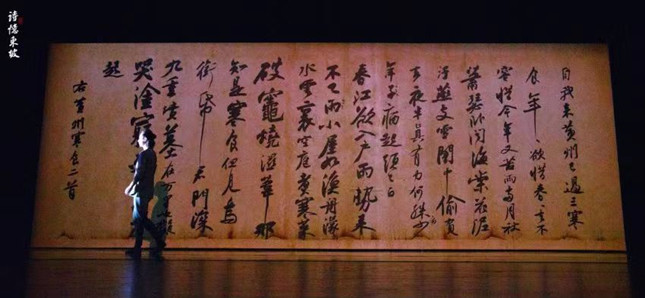 詩憶東坡
自我來黃州已過三寒
食年〻欲惜春〻去不
容惜今年又苦雨兩月秋
蕭瑟臥聞海棠花泥
汙燕支雪闇中偷負
去夜半真有力何殊少
年子病起頭已白
春江欲入戶雨勢來
不已雨小屋如漁舟濛〻
水雲裏空庖煮寒菜
破竈燒濕葦那
知是寒食但見烏
銜帋君門深
九重墳墓在
哭塗窮
起
右黃州寒食二首